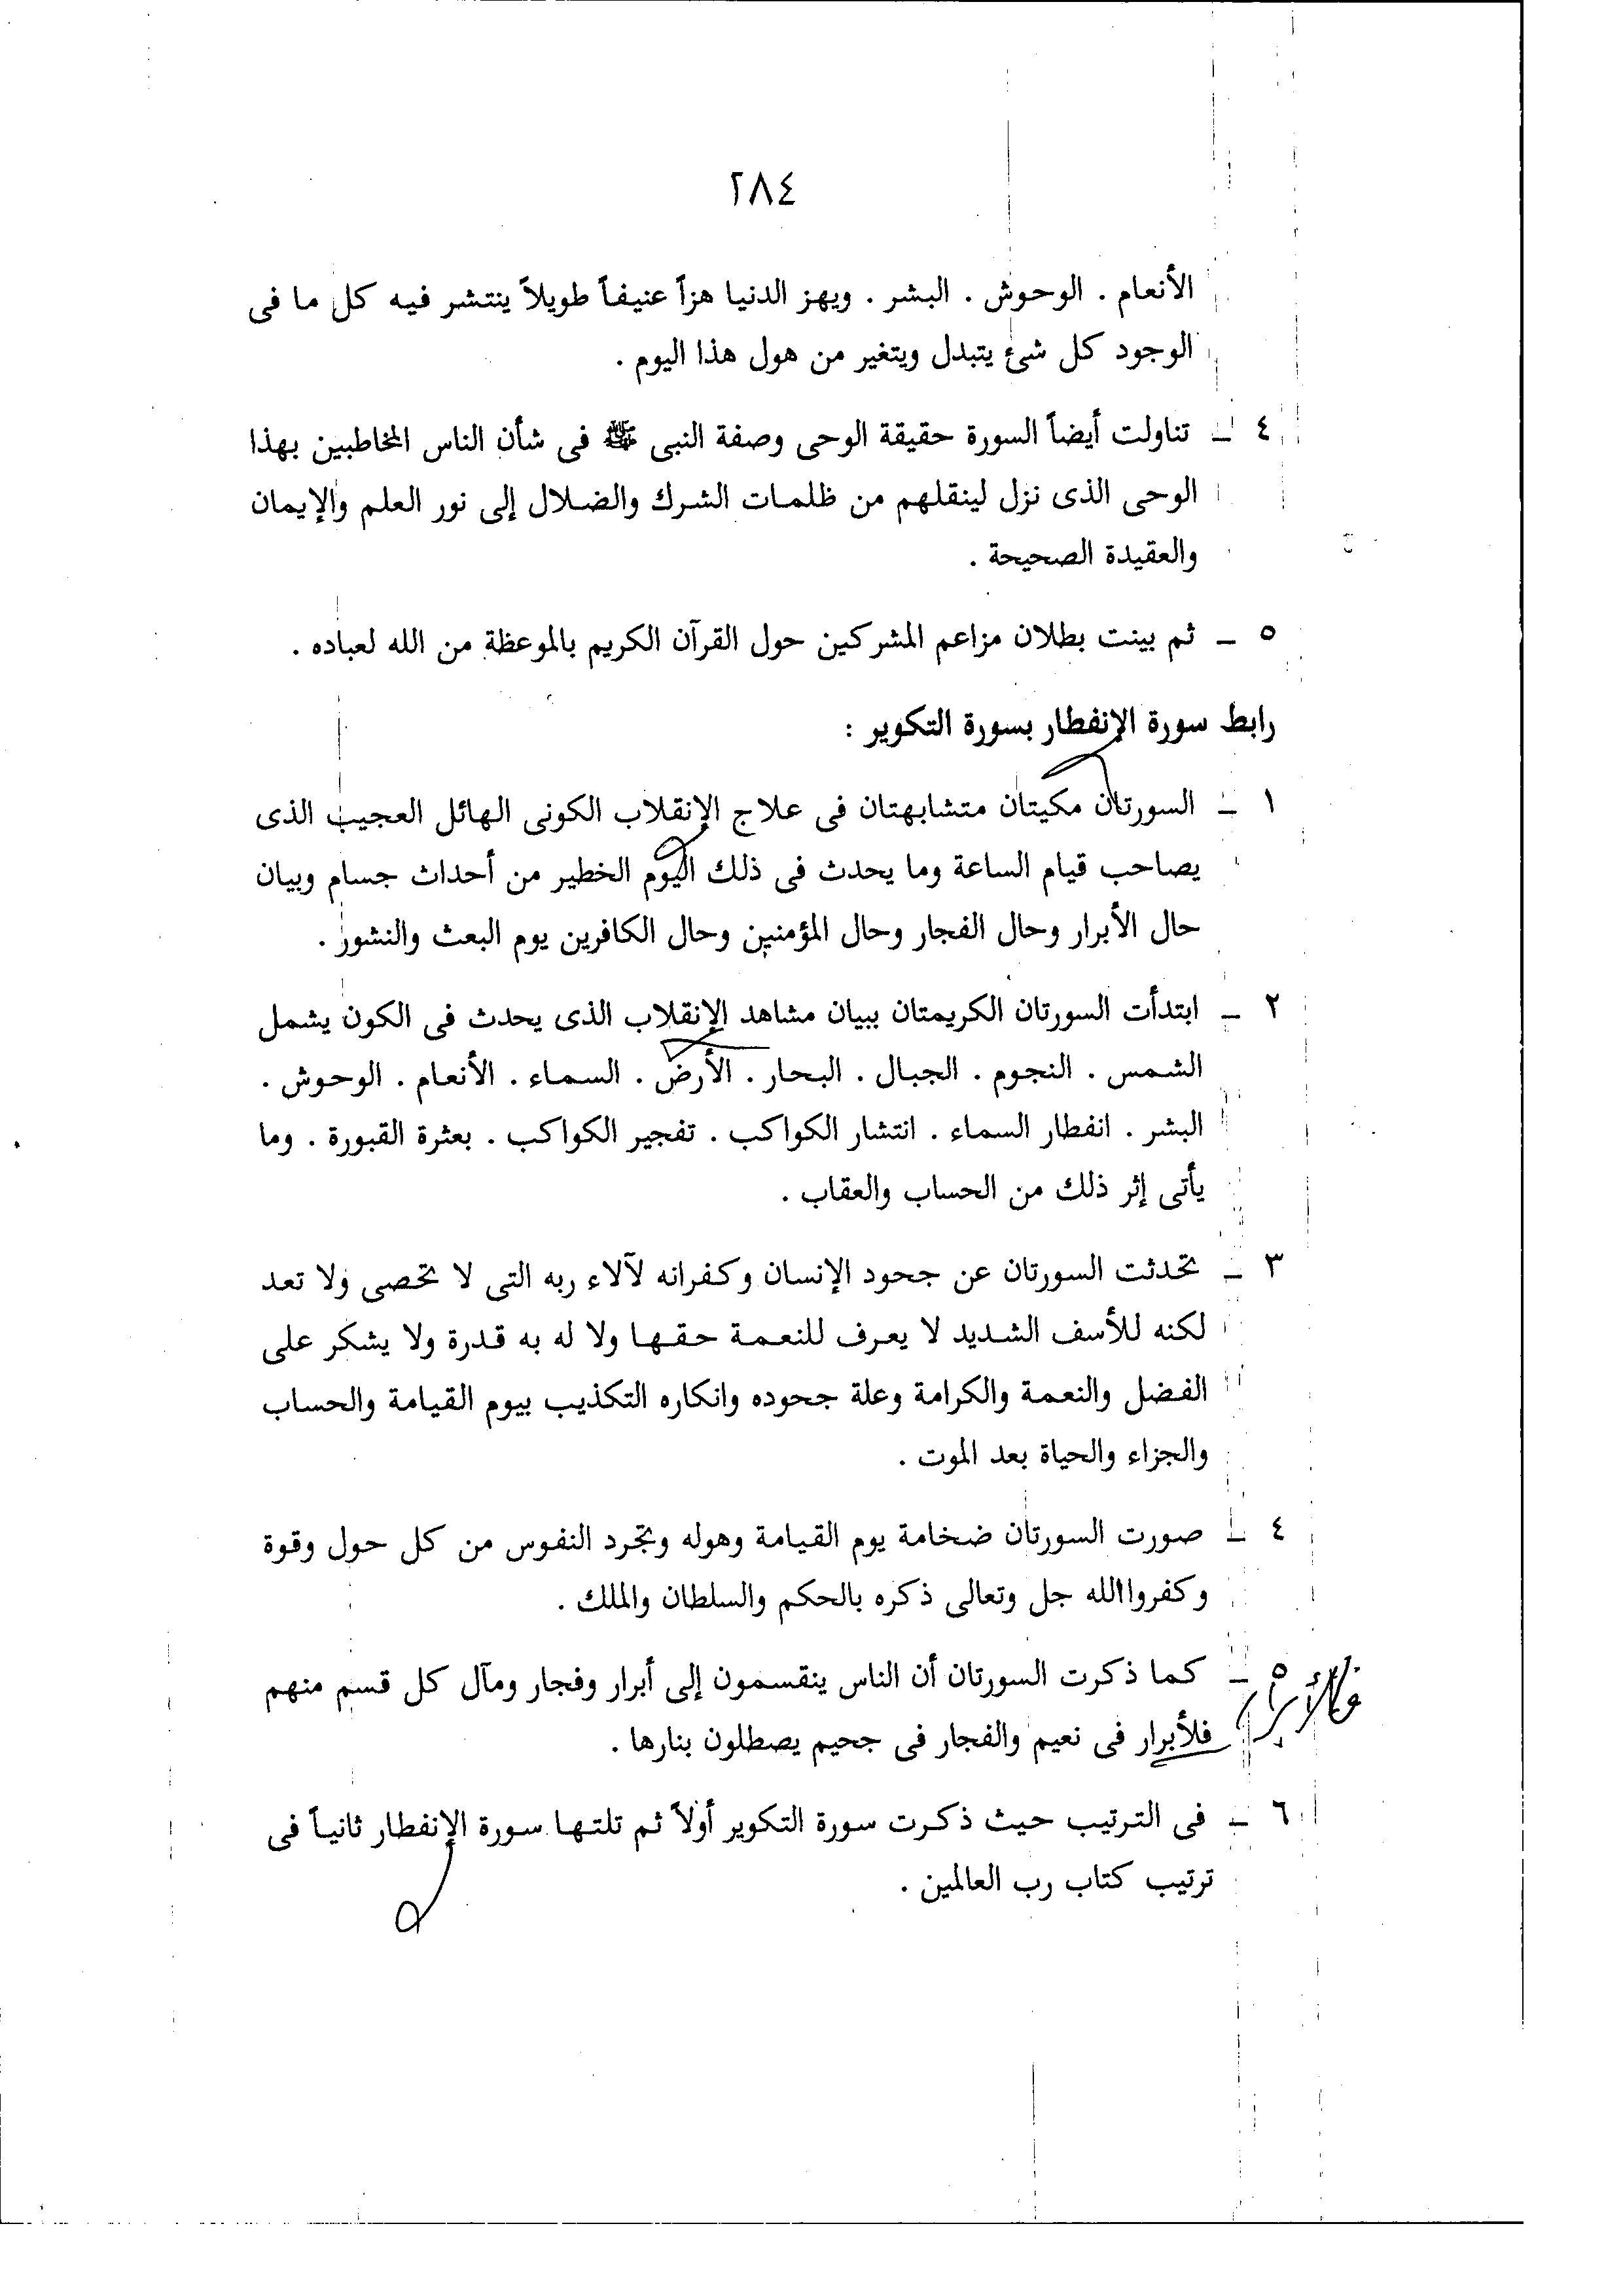 ٢٨٤
الأنعام . الوحوش . البشر . ويهز الدنيا هزاً عنيفاً طويلاً ينتشر فيه كل ما فى
الوجود كل شئ يتبدل ويتغير من هول هذا اليوم .
٤ ــ تناولت أيضاً السورة حقيقة الوحى وصفة النبى ﷺ فى شأن الناس المخاطبين بهذا
الوحى الذى نزل لينقلهم من ظلمات الشرك والضلال إلى نور العلم والإيمان
والعقيدة الصحيحة .
٥ ــ ثم بينت بطلان مزاعم المشركين حول القرآن الكريم بالموعظة من الله لعباده .
رابط سورة الإنفطار بسورة التكوير :
١ ــ السورتان مكيتان متشابهتان فى علاج الإنقلاب الكونى الهائل العجيب الذى
يصاحب قيام الساعة وما يحدث فى ذلك اليوم الخطير من أحداث جسام وبيان
حال الأبرار وحال الفجار وحال المؤمنين وحال الكافرين يوم البعث والنشور .
٢ ــ ابتدأت السورتان الكريمتان ببيان مشاهد الإنقلاب الذى يحدث فى الكون يشمل
الشمس . النجوم . الجبال . البحار . الأرض . السماء . الأنعام . الوحوش .
البشر . انفطار السماء . انتشار الكواكب . تفجير الكواكب . بعثرة القبورة . وما
يأتى إثر ذلك من الحساب والعقاب .
٣ ــ تحدثت السورتان عن جحود الإنسان وكفرانه لآلاء ربه التى لا تحصى ولا تعد
لكنه للأسف الشديد لا يعرف للنعمة حقها ولا له به قدرة ولا يشكر على
الفضل والنعمة والكرامة وعلة جحوده وانكاره التكذيب بيوم القيامة والحساب
والجزاء والحياة بعد الموت .
٤ ــ صورت السورتان ضخامة يوم القيامة وهوله وتجرد النفوس من كل حول وقوة
وكفرواالله جل وتعالى ذكره بالحكم والسلطان والملك .
٥ ــ كما ذكرت السورتان أن الناس ينقسمون إلى أبرار وفجار ومآل كل قسم منهم
فلأبرار فى نعيم والفجار فى جحيم يصطلون بنارها .
فالأبرار
٦ ــ فى الترتيب حيث ذكرت سورة التكوير أولاً ثم تلتها سورة الإنفطار ثانياً فى
ترتيب كتاب رب العالمين .